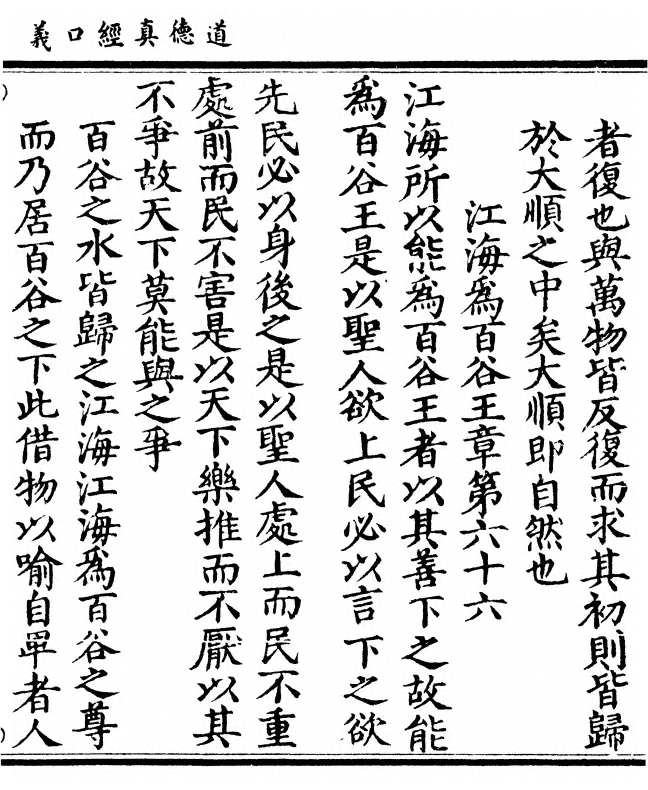 道德真經口義
者復也與萬物皆反復而求其初則皆歸
於大順之中矣大順即自然也
江海爲百谷王章第六十六
江海所以能爲百谷王者以其善下之故能
爲百谷王是以聖人欲上民必以言下之欲
先民必以身後之是以聖人處上而民不重
處前而民不害是以天下樂推而不厭以其
不爭故天下莫能與之爭
百谷之水皆歸之江海江海爲百谷之尊
而乃居百谷之下此借物以喻自卑者人